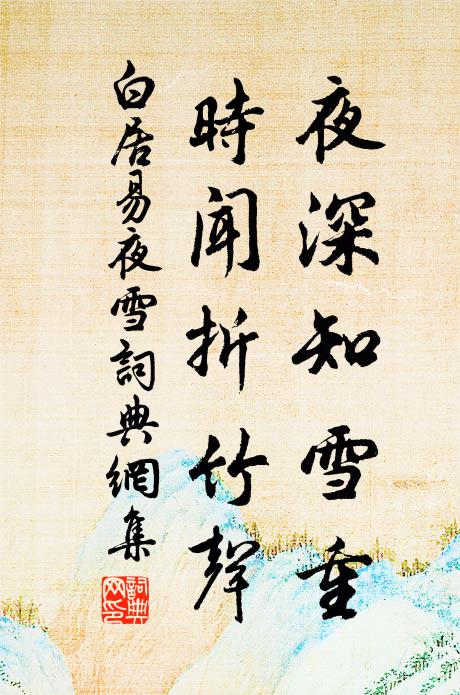 夜深知雪重
時聞折竹聲
白居易夜雪詞典網集
詞典
网印